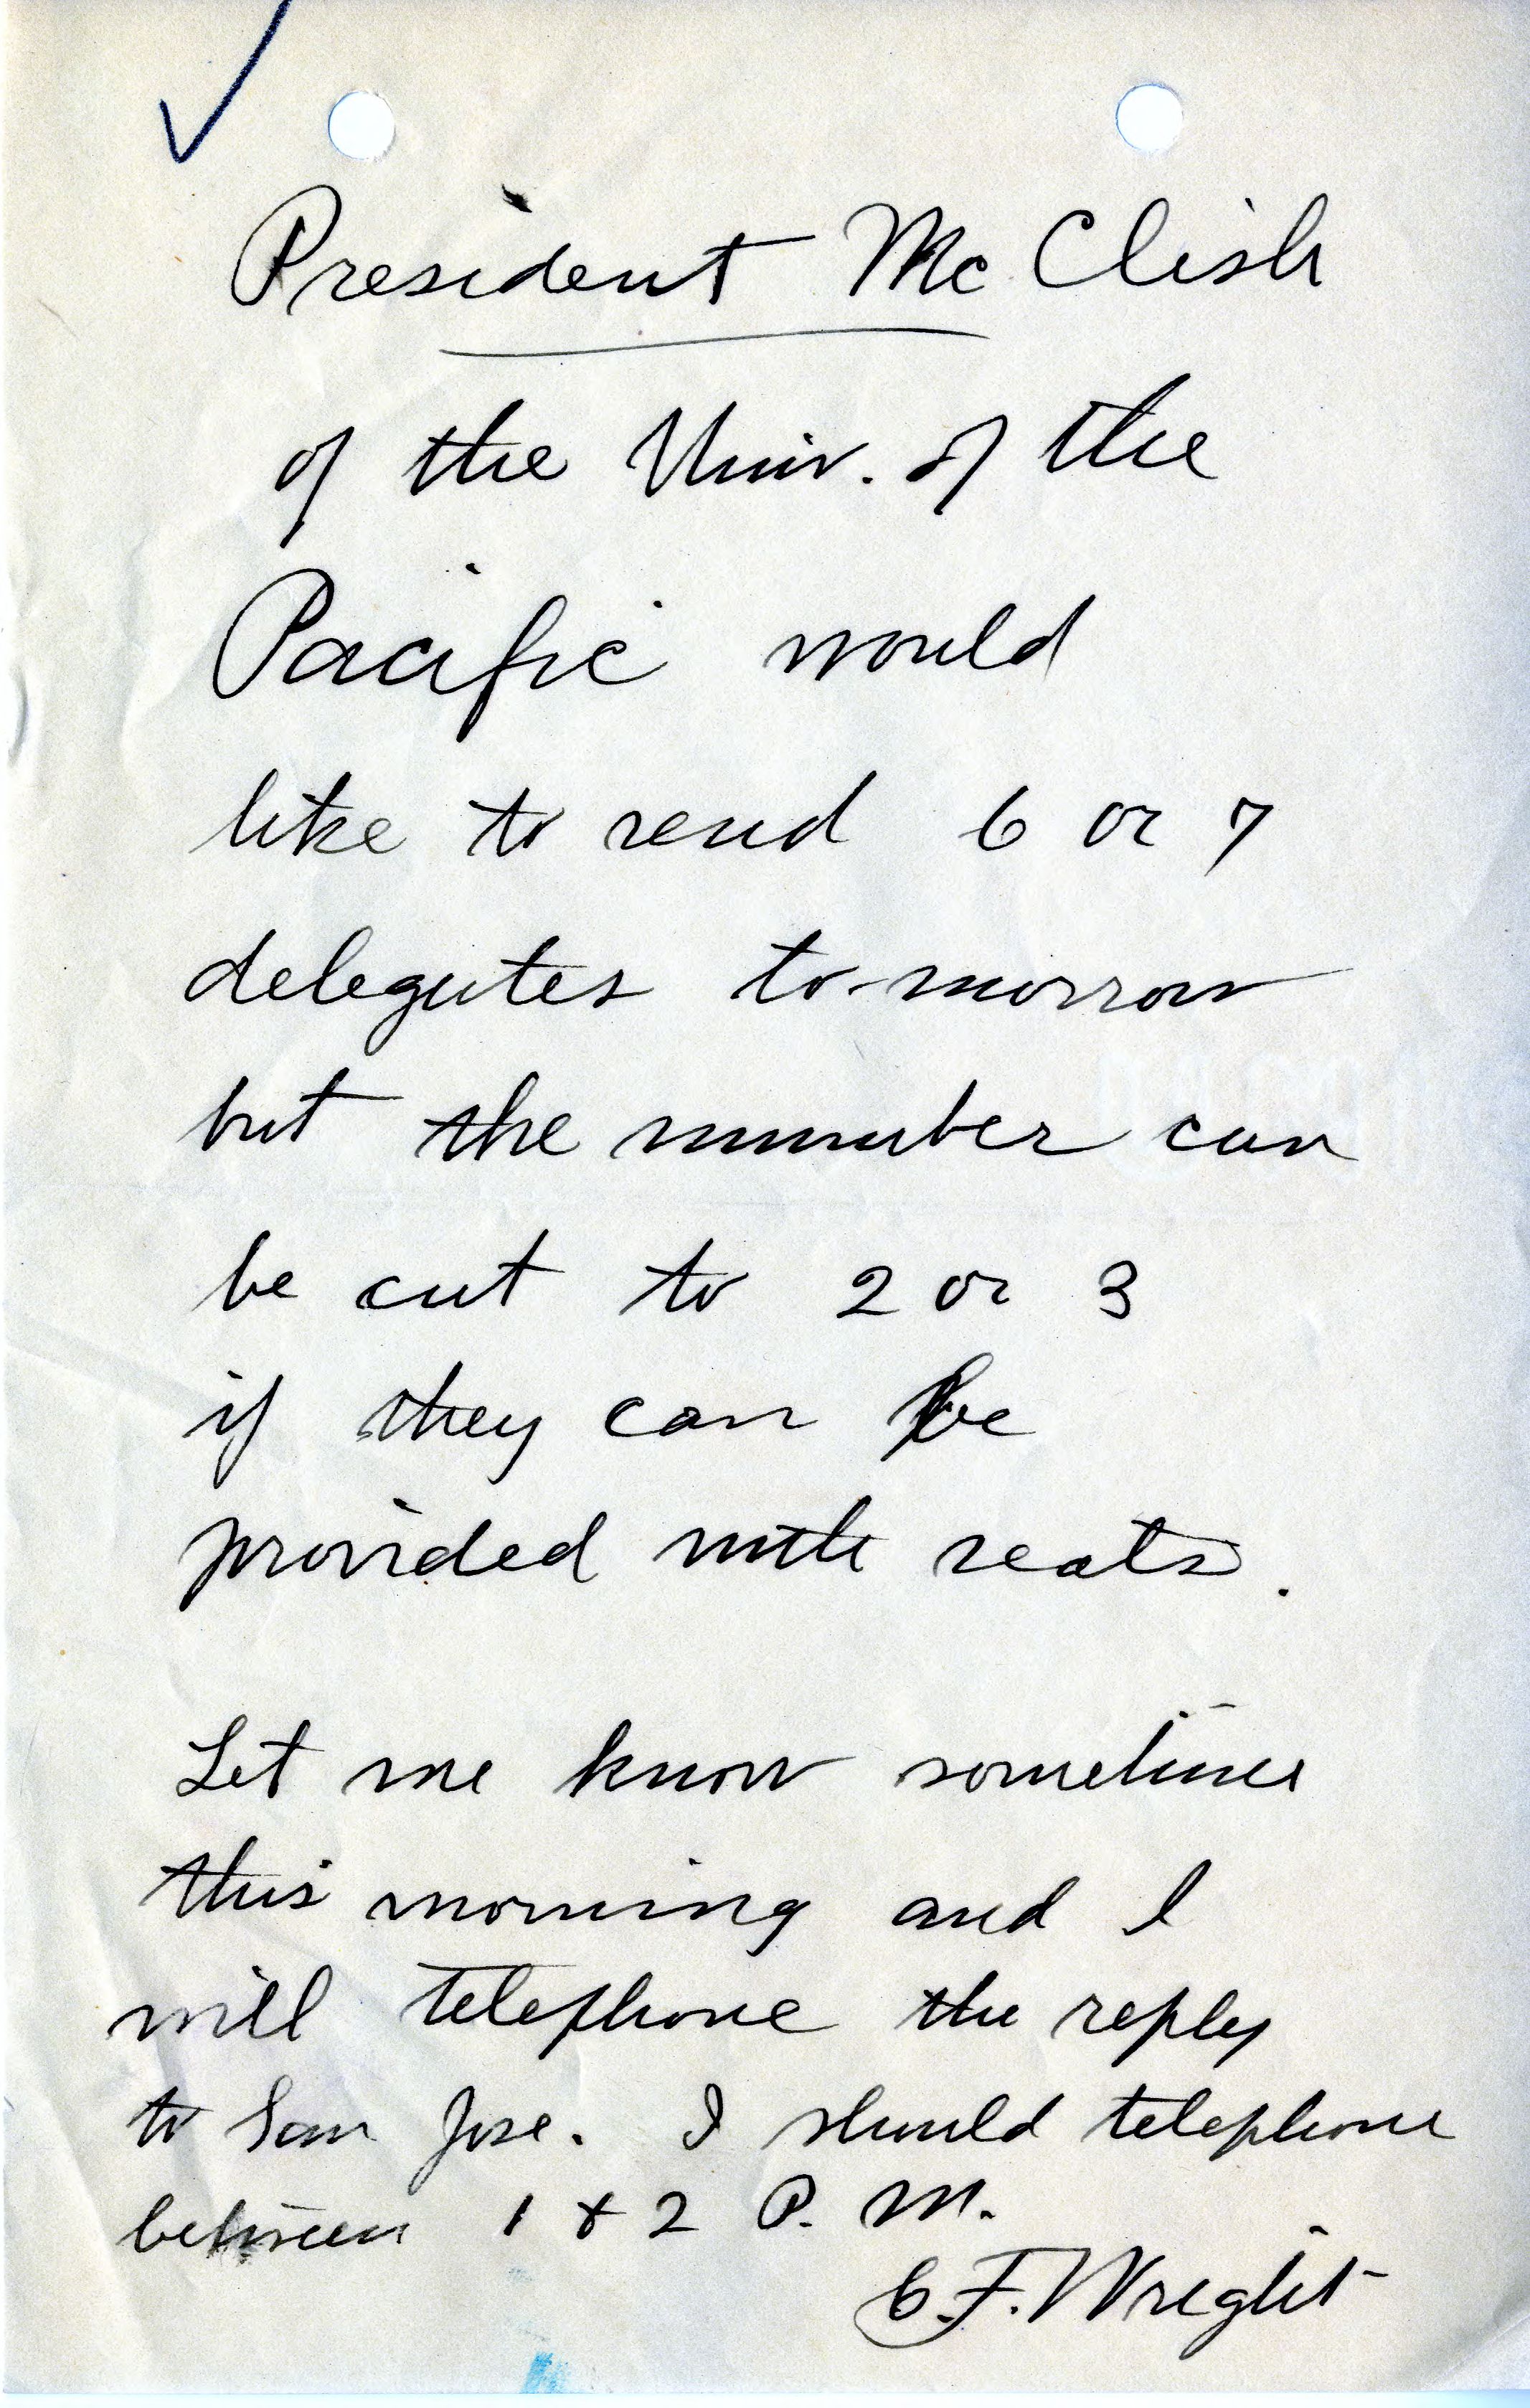 President McClish
of the Univ. of the
Pacific would
like to send 6 or 7
delegates to-morrow
but the number can
be cut to 2 or 3
if they can be
provided with seats.
Let me know sometime
this morning and I
will telephone the reply
to San Jose. I should telephone
between 1 & 2 P. M.
C. F. Wright